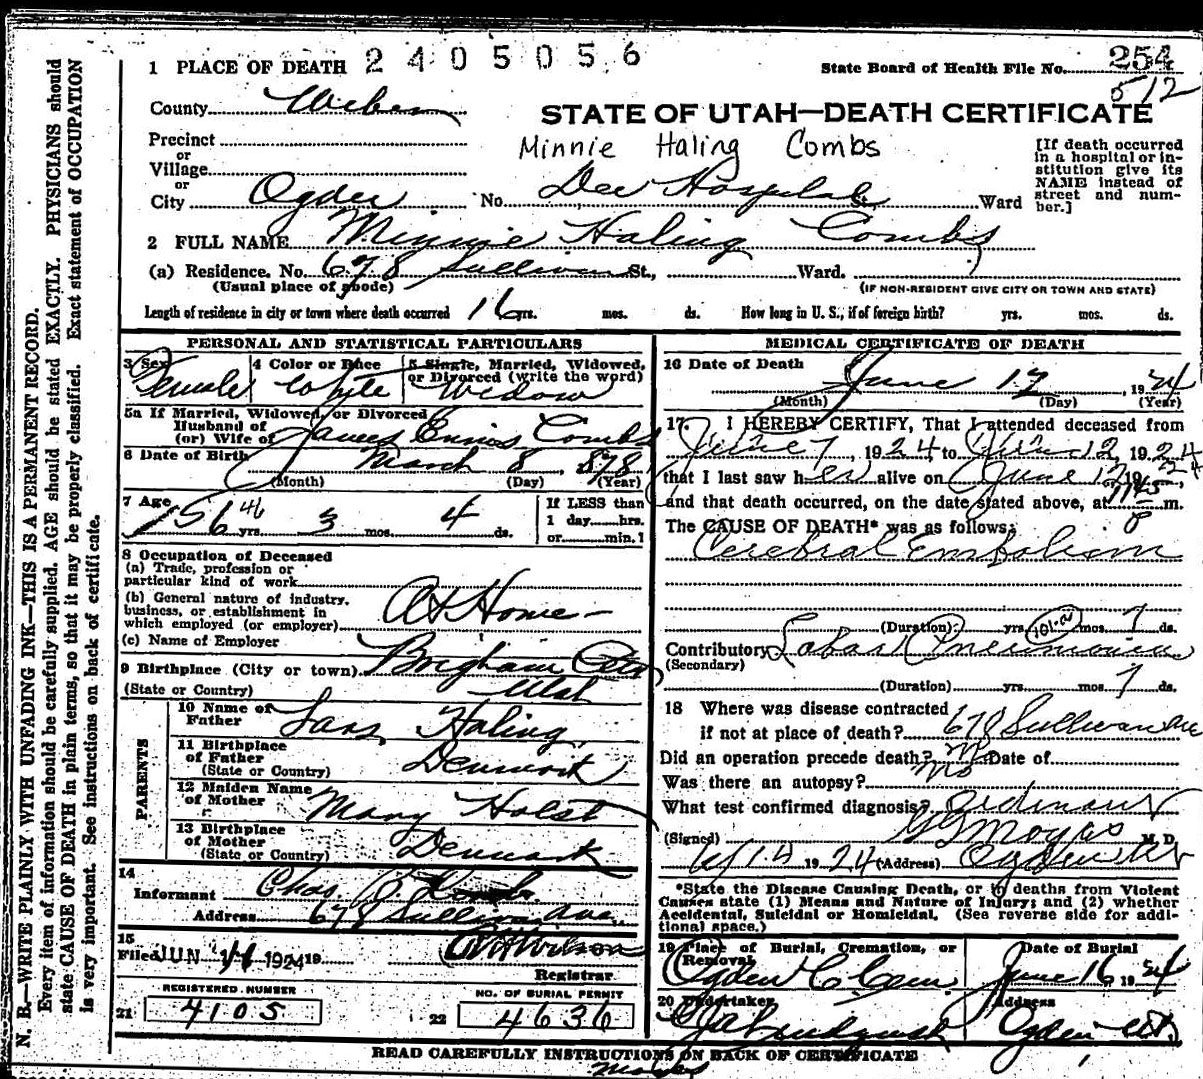 1 PLACE OF DEATH 2405056
State Board of Health File No. 254
512
County Weber
STATE OF UTAH—DEATH CERTIFICATE
Minnie Haling Combs
Precinct
or
Village
or
City Ogden No. Dee Hospital St. Ward
[If death occurred
in a hospital or in-
stitution give its
NAME instead of
street and num-
ber.]
2 FULL NAME Minnie Haling Combs
(a) Residence. No. 678 Sullivan St., Ward.
(Usual place of abode) (IF NON-RESIDENT GIVE CITY OR TOWN AND STATE)
Length of residence in city or town where death occurred 16 yrs. mos. ds. How long in U. S., if of foreign birth? yrs. mos. ds.
PERSONAL AND STATISTICAL PARTICULARS
3 Sex Female
4 Color or Race White
5 Single, Married, Widowed,
or Divorced (write the word)
Widow
5a If Married, Widowed, or Divorced
Husband of
(or) Wife of James Ennis Combs
6 Date of Birth March 8, 1878
(Month) (Day) (Year)
7 Age 56 46 yrs. 3 mos. 4 ds.
If LESS than
1 day......hrs.
or......min.
8 Occupation of Deceased
(a) Trade, profession or
particular kind of work
(b) General nature of industry,
business, or establishment in
which employed (or employer) At Home
(c) Name of Employer
9 Birthplace (City or town) Brigham City
(State or Country) Utah
PARENTS
10 Name of
Father Lars Haling
11 Birthplace
of Father
(State or Country) Denmark
12 Maiden Name
of Mother Mary Holst
13 Birthplace
of Mother
(State or Country) Denmark
14
Informant Chas.
Address 678 Sullivan Ave.
15
Filed JUN 14 1924 19 Wilson
Registrar
REGISTERED NUMBER
21 4105
NO. OF BURIAL PERMIT
22 4636
MEDICAL CERTIFICATE OF DEATH
16 Date of Death
June 12 1924
(Month) (Day) (Year)
17. I HEREBY CERTIFY, That I attended deceased from
June 7, 1924, to June 12, 1924
that I last saw her alive on June 12 1924,
and that death occurred, on the date stated above, at 1145 m.
The CAUSE OF DEATH* was as follows:
Cerebral Embolism
(Duration) yrs. 101-a mos. 7 ds.
Contributory Lobar Pneumonia
(Secondary)
(Duration) yrs. mos. 7 ds.
18 Where was disease contracted
if not at place of death? 678 Sullivan Ave
Did an operation precede death? No Date of
Was there an autopsy? No
What test confirmed diagnosis? Ordinary
(Signed) M. D.
1924 (Address) Ogden
*State the Disease Causing Death, or in deaths from Violent
Causes state (1) Means and Nature of Injury; and (2) whether
Accidental, Suicidal or Homicidal. (See reverse side for addi-
tional space.)
19 Place of Burial, Cremation, or
Removal
Ogden C Cem
Date of Burial
June 16 1924
20 Undertaker
Lindquist
Address
Ogden Ut.
READ CAREFULLY INSTRUCTIONS ON BACK OF CERTIFICATE
N. B.—WRITE PLAINLY WITH UNFADING INK—THIS IS A PERMANENT RECORD.
Every item of information should be carefully supplied. AGE should be stated EXACTLY. PHYSICIANS should
state CAUSE OF DEATH in plain terms, so that it may be properly classified. Exact statement of OCCUPATION
is very important. See instructions on back of certificate.